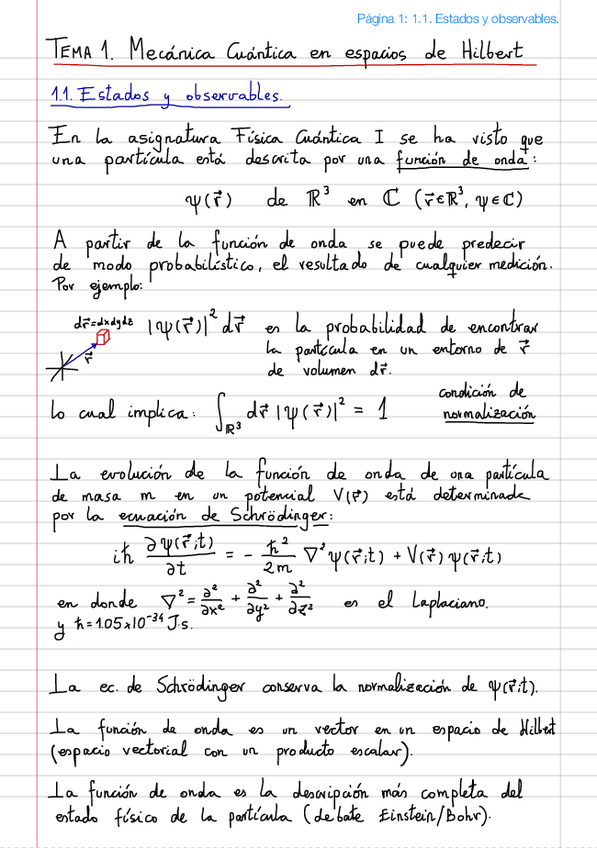 Página 1: 1.1. Estados y observables.
TEMA 1. Mecánica Cuántica en espacios de Hilbert
1.1. Estados y observables.
En la asignatura Física Cuántica I se ha visto que
una partícula está descrita por una función de onda:
ψ(r⃗) de ℝ³ en ℂ (r⃗∈ℝ³, ψ∈ℂ)
A partir de la función de onda se puede predecir
de modo probabilístico, el resultado de cualquier medición.
Por ejemplo:
dr⃗=dxdydz
r⃗
|ψ(r⃗)|² dr⃗ es la probabilidad de encontrar
la partícula en un entorno de r⃗
de volumen dr⃗.
lo cual implica: ∫_ℝ³ dr⃗ |ψ(r⃗)|² = 1 condición de
normalización
La evolución de la función de onda de una partícula
de masa m en un potencial V(r⃗) está determinada
por la ecuación de Schrödinger:
iħ ∂ψ(r⃗;t)/∂t = - ħ²/2m ∇²ψ(r⃗;t) + V(r⃗)ψ(r⃗;t)
en donde ∇² = ∂²/∂x² + ∂²/∂y² + ∂²/∂z² es el Laplaciano.
y ħ=1.05×10⁻³⁴ J·s.
La ec. de Schrödinger conserva la normalización de ψ(r⃗;t).
La función de onda es un vector en un espacio de Hilbert
(espacio vectorial con un producto escalar).
La función de onda es la descripción más completa del
estado físico de la partícula (debate Einstein/Bohr).